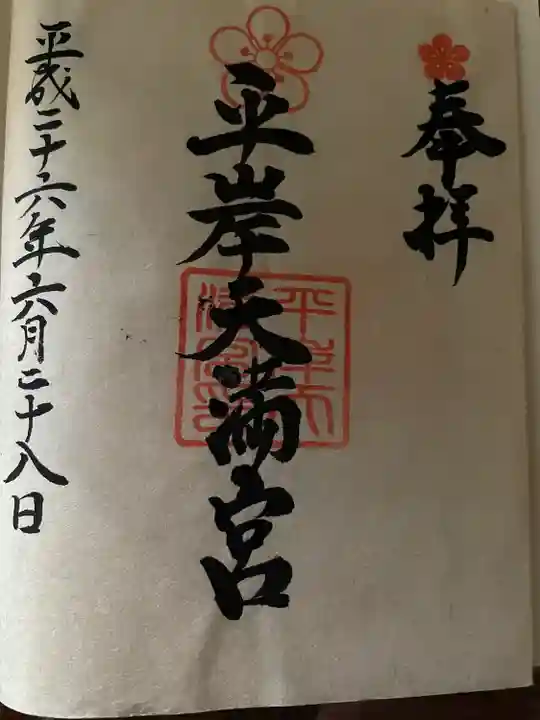 奉拝
平岸天満宮
平岸天満宮印
平成二十六年六月二十八日